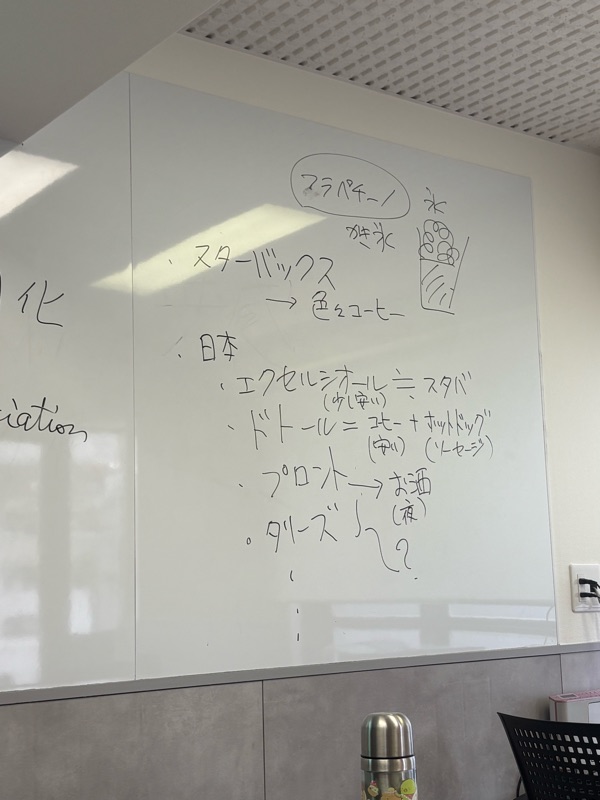 化
ciation
フラペチーノ
氷
かき氷
・スターバックス
→ 色々コーヒー
・日本
・エクセルシオール ≒ スタバ
(少し安い)
・ドトール = コーヒー + ホットドッグ
(安い) (ソーセージ)
・プロント → お酒
(夜)
・タリーズ ?